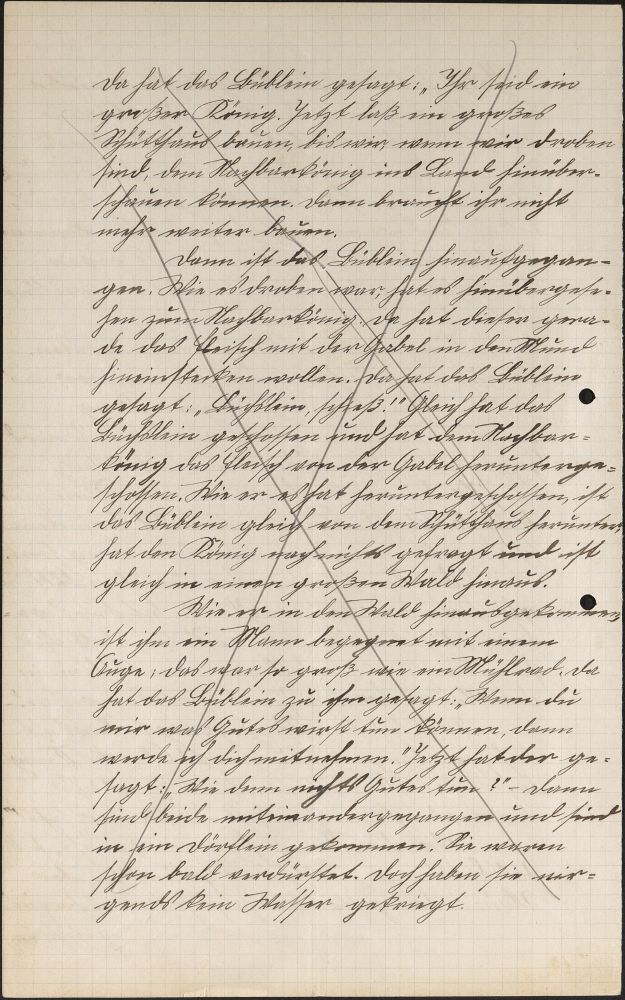 Da hat das Büblein gesagt: „Ihr seid ein
großer König. Jetzt laß ein großes
Schütthaus bauen, bis wir, wenn wir droben
sind, dem Nachbarkönig ins Land hinüber-
schauen können. Dann braucht ihr nicht
mehr weiter bauen.
Dann ist das Büblein hinaufgegan-
gen. Wie es droben war, hat es hinübergese-
hen zum Nachbarkönig. Da hat dieser gera-
de das Fleisch mit der Gabel in den Mund
hineinstecken wollen. Da hat das Büblein
gesagt: „Büchslein, schieß!" Gleich hat das
Büchslein geschossen und hat dem Nachbar-
könig das Fleisch von der Gabel herunterge-
schossen. Wie er es hat heruntergeschossen, ist
das Büblein gleich von dem Schütthaus herunter,
hat den König nach nichts gefragt und ist
gleich in einen großen Wald hinaus.
Wie er in den Wald hinausgekommen,
ist ihm ein Mann begegnet mit einem
Auge; das war so groß wie ein Mühlrad. Da
hat das Büblein zu ihm gesagt: „Wenn du
mir was Gutes wirst tun können, dann
werde ich dich mitnehmen." Jetzt hat der ge-
sagt: „Wie denn nichts Gutes tun?" – Dann
sind beide miteinandergegangen und sind
in ein Dörflein gekommen. Sie waren
schon bald verdürstet. Doch haben sie nir-
gends kein Wasser gekriegt.